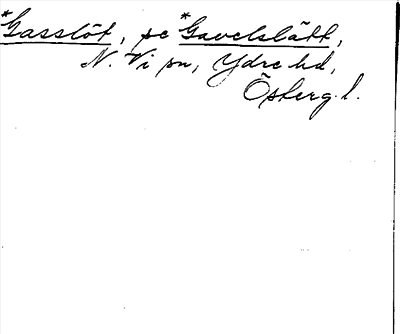 *Gasslöt, se *Gavelslätt,
N. Vi sn, Ydre hd,
Österg. l.